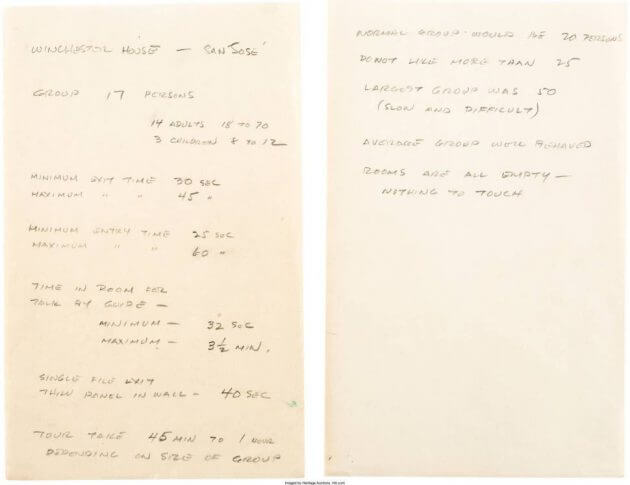 WINCHESTER HOUSE — SAN JOSE'
GROUP 17 PERSONS
14 ADULTS 18 TO 70
3 CHILDREN 8 TO 12
MINIMUM EXIT TIME 30 SEC
MAXIMUM " " 45 "
MINIMUM ENTRY TIME 25 SEC
MAXIMUM " " 60 "
TIME IN ROOM FOR
TALK BY GUIDE —
MINIMUM — 32 SEC
MAXIMUM — 3½ MIN.
SINGLE FILE EXIT
THRU PANEL IN WALL — 40 SEC
TOUR TAKE 45 MIN TO 1 HOUR
DEPENDING ON SIZE OF GROUP
NORMAL GROUP WOULD BE 20 PERSONS
DO NOT LIKE MORE THAN 25
LARGEST GROUP WAS 50
(SLOW AND DIFFICULT)
AVERAGE GROUP WELL BEHAVED
ROOMS ARE ALL EMPTY —
NOTHING TO TOUCH
Imaged by Heritage Auctions, HA.com